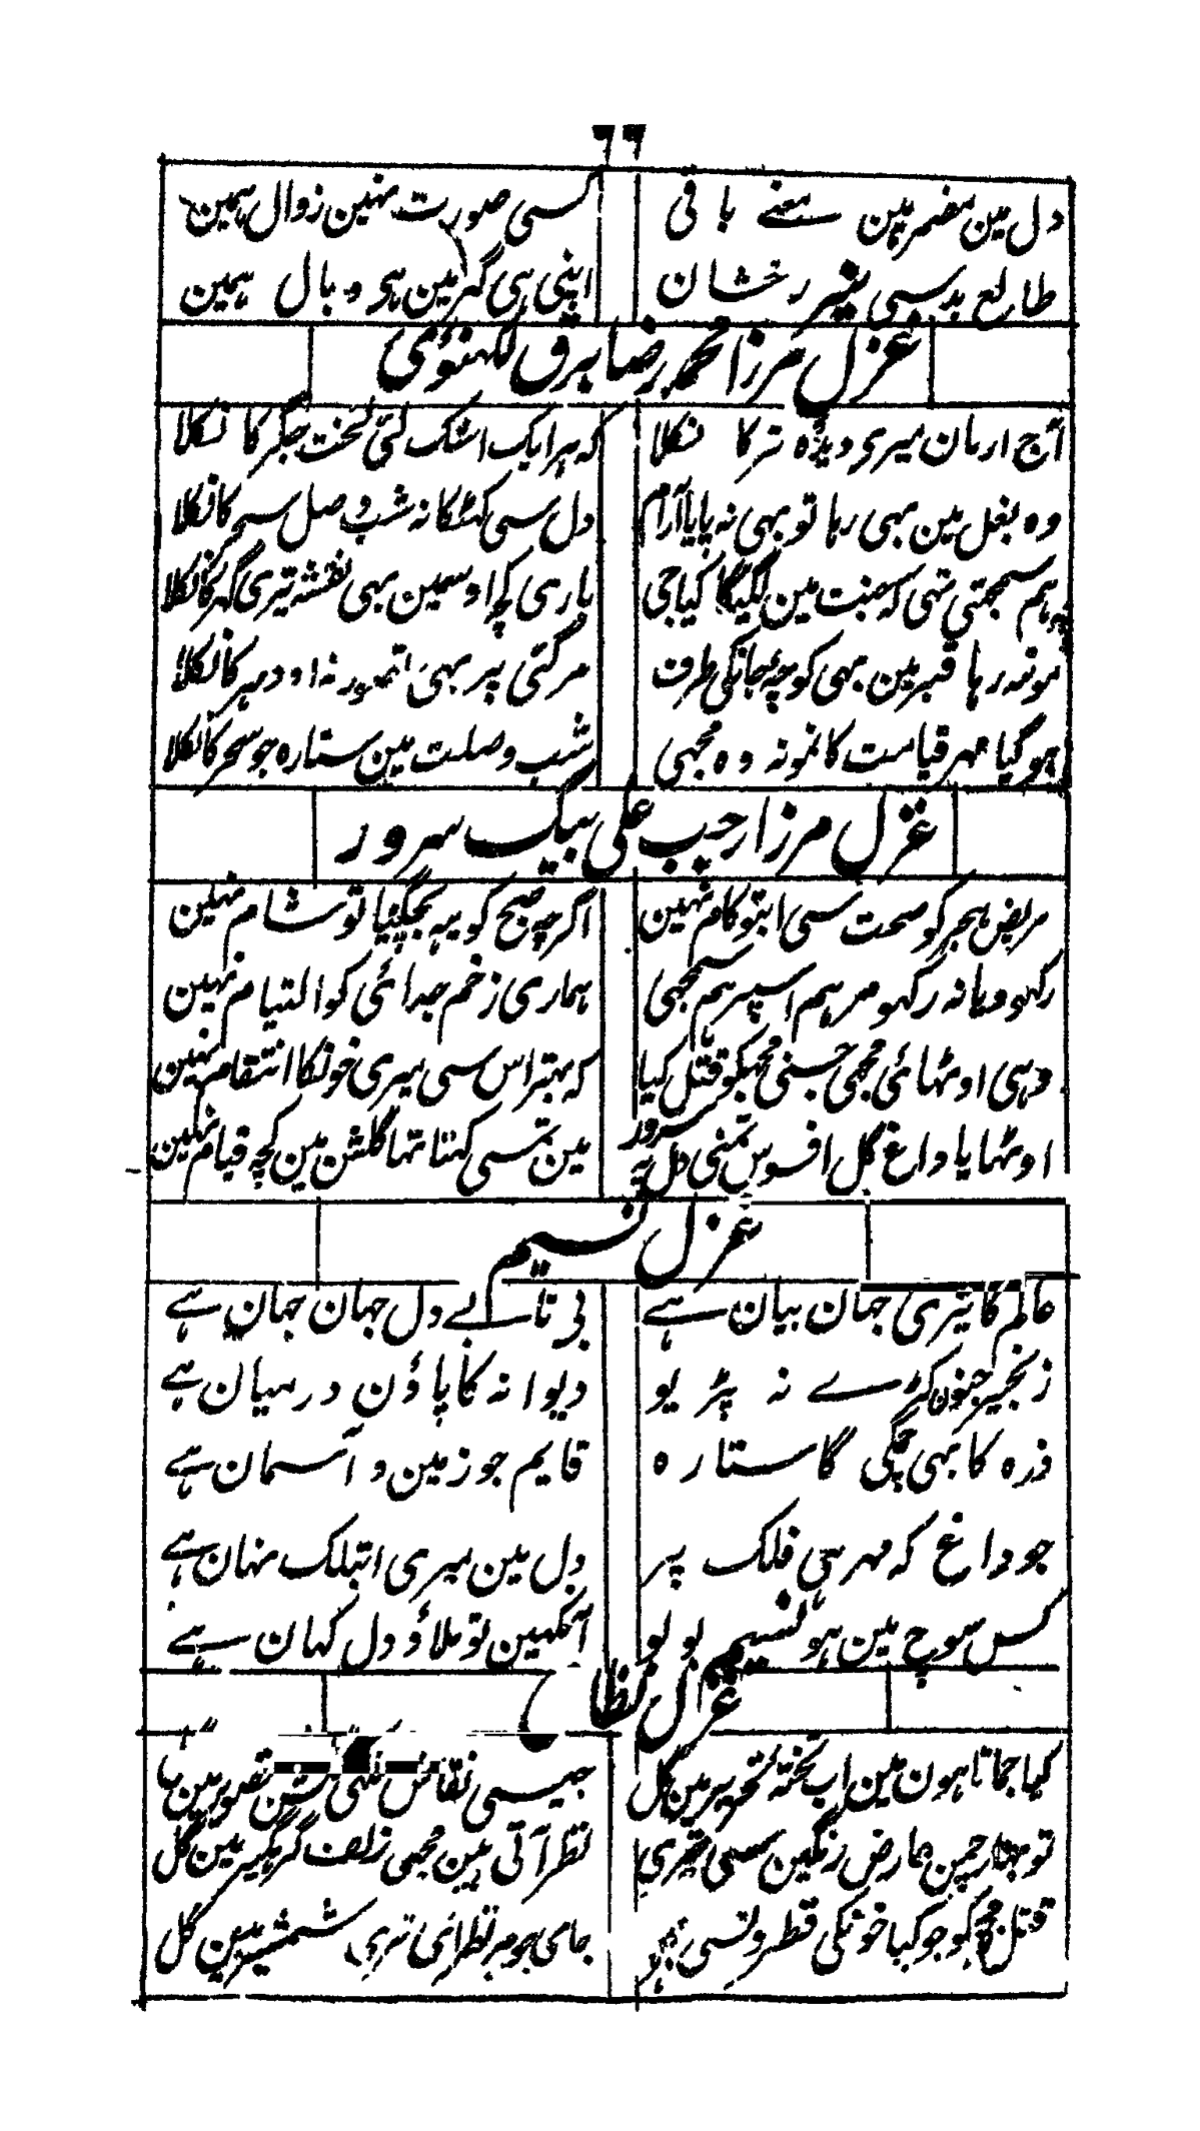 ٦٦
دل مین مضمر ہین معنے باقی کسی صورت نہین زوال ہمین
طالع بد سی نیر رخشان اپنی ہی گہر مین ہو وبال ہمین
غزل مرزا محمد رضا برق لکہنوی
آج ارمان میری دیدۂ تر کا نکلا کہ ہر ایک اشک لئی لخت جگر کا نکلا
وہ بغل مین بہی رہا تو بہی نہ پایا آرام دل سی کہٹکا نہ شب وصل سحر کا نکلا
ہم سمجہتی تہی کہ جنت مین لگیگا کیا جی باری کچہ اوسمین بہی نقشہ تیری گہر کا نکلا
مونہ رہا قبر مین بہی کوچہ جانانکی طرف مر گئی پر بہی تصور نہ اودہر کا نکلا
ہو گیا مہر قیامت کا نمونہ وہ مجہی شب وصلت مین ستارہ جو سحر کا نکلا
غزل مرزا رجب علی بیگ سرور
مریض ہجر کو صحت سی ابتو کام نہین اگرچہ صبح کو یہ بچگیا تو شام نہین
رکہو یا نہ رکہو مرہم اسپر ہم سمجہی ہماری زخم جدائی کو التیام نہین
وہی اوٹہائی مجہی جسنی مجہکو قتل کیا کہ بہتر اس سی میری خونکا انتقام نہین
اوٹہایا داغ گل افسوس تمنی دل پہ سرور مین تمسی کہتا تہا گلشن مین کچہ قیام نہین
غزل نسیم
عالم کا تیری جہان بیان ہے بی تابے دل جہان جہان ہے
زنجیر جنون کڑے نہ پڑیو دیوانہ کا پاؤن درمیان ہے
ذرہ کا بہی چمکی گا ستارہ قایم جو زمین و آسمان ہے
جو داغ کہ مہر سی فلک پر دل مین میری ابتلک نہان ہے
کس سوچ مین ہو نسیم بولو آنکہین تو ملاؤ دل کہان ہے
غزل نظام
کیا جماتا ہون مین اب تختہ تحریر مین گل جیسی نقاش تصویر مین
تو بہار چمن عارض رنگین سی تیری نظر آتی ہین مجہی زلف گرہگیر مین گل
قتل مجہکو جو کیا خونکی قطرونسی جای جوہر نظر آئی تری شمشیر مین گل